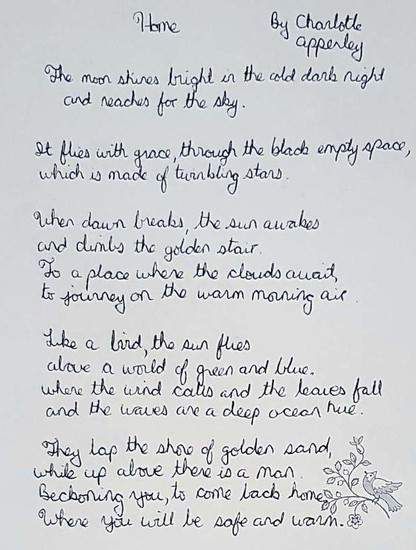 Home
By Charlotte
Apperley
The moon shines bright in the cold dark night
and reaches for the sky.
It flies with grace, through the black empty space,
which is made of twinkling stars.
When dawn breaks, the sun awakes
and climbs the golden stair.
To a place where the clouds await,
to journey on the warm morning air.
Like a bird, the sun flies
above a world of green and blue.
where the wind calls and the leaves fall
and the waves are a deep ocean hue.
They lap the shore of golden sand,
while up above there is a man.
Beckoning you, to come back home,
Where you will be safe and warm.